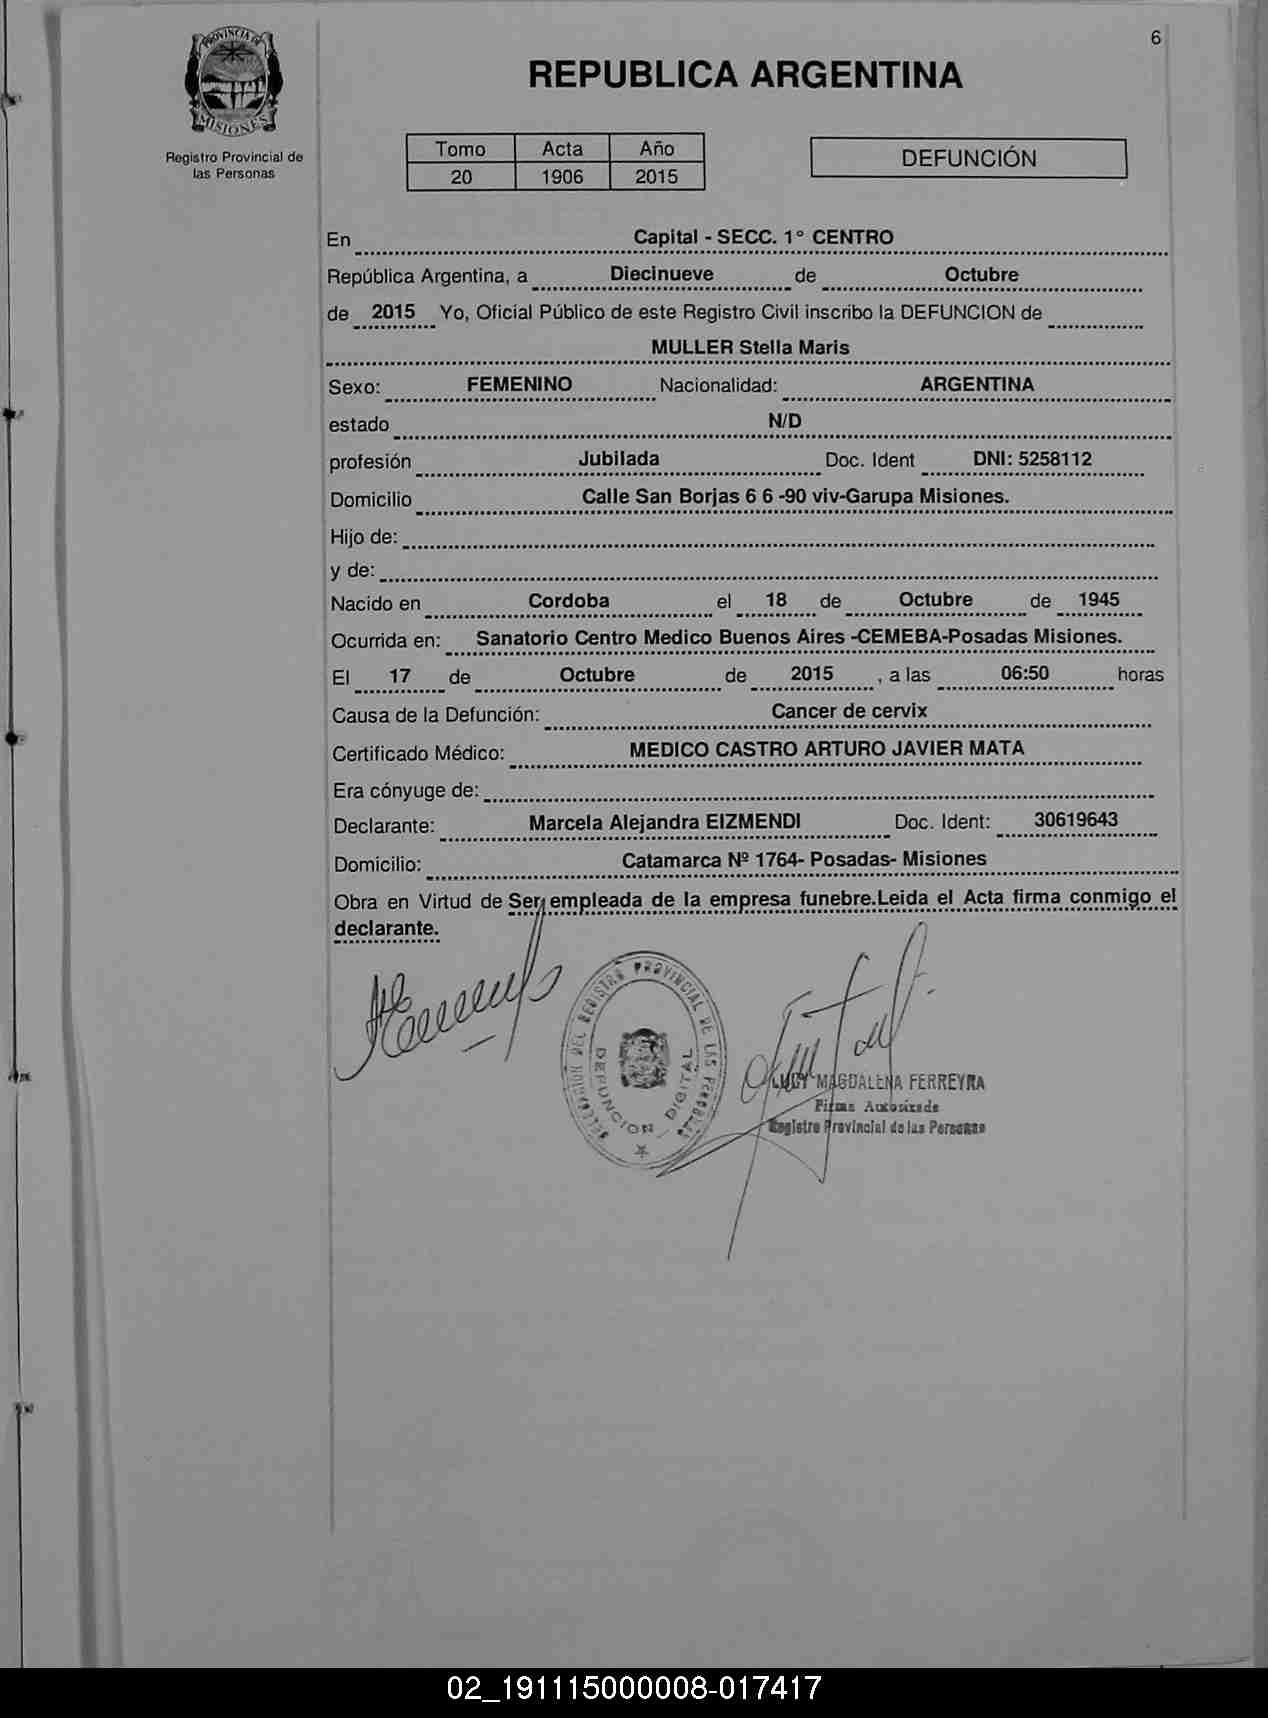 6
PROVINCIA DE
MISIONES
Registro Provincial de
las Personas
REPUBLICA ARGENTINA
Tomo Acta Año
20 1906 2015
DEFUNCIÓN
En Capital - SECC. 1° CENTRO
República Argentina, a Diecinueve de Octubre
de 2015 Yo, Oficial Público de este Registro Civil inscribo la DEFUNCION de
MULLER Stella Maris
Sexo: FEMENINO Nacionalidad: ARGENTINA
estado N/D
profesión Jubilada Doc. Ident DNI: 5258112
Domicilio Calle San Borjas 6 6 -90 viv-Garupa Misiones.
Hijo de:
y de:
Nacido en Cordoba el 18 de Octubre de 1945
Ocurrida en: Sanatorio Centro Medico Buenos Aires -CEMEBA-Posadas Misiones.
El 17 de Octubre de 2015 , a las 06:50 horas
Causa de la Defunción: Cancer de cervix
Certificado Médico: MEDICO CASTRO ARTURO JAVIER MATA
Era cónyuge de:
Declarante: Marcela Alejandra EIZMENDI Doc. Ident: 30619643
Domicilio: Catamarca Nº 1764- Posadas- Misiones
Obra en Virtud de Ser empleada de la empresa funebre.Leida el Acta firma conmigo el
declarante.
DEL REGISTRO PROVINCIAL DE LAS PERSONAS
DEFUNCION DIGITAL
MAGDALENA FERREYRA
Firma Autorizada
Registro Provincial de las Personas
02_191115000008-017417